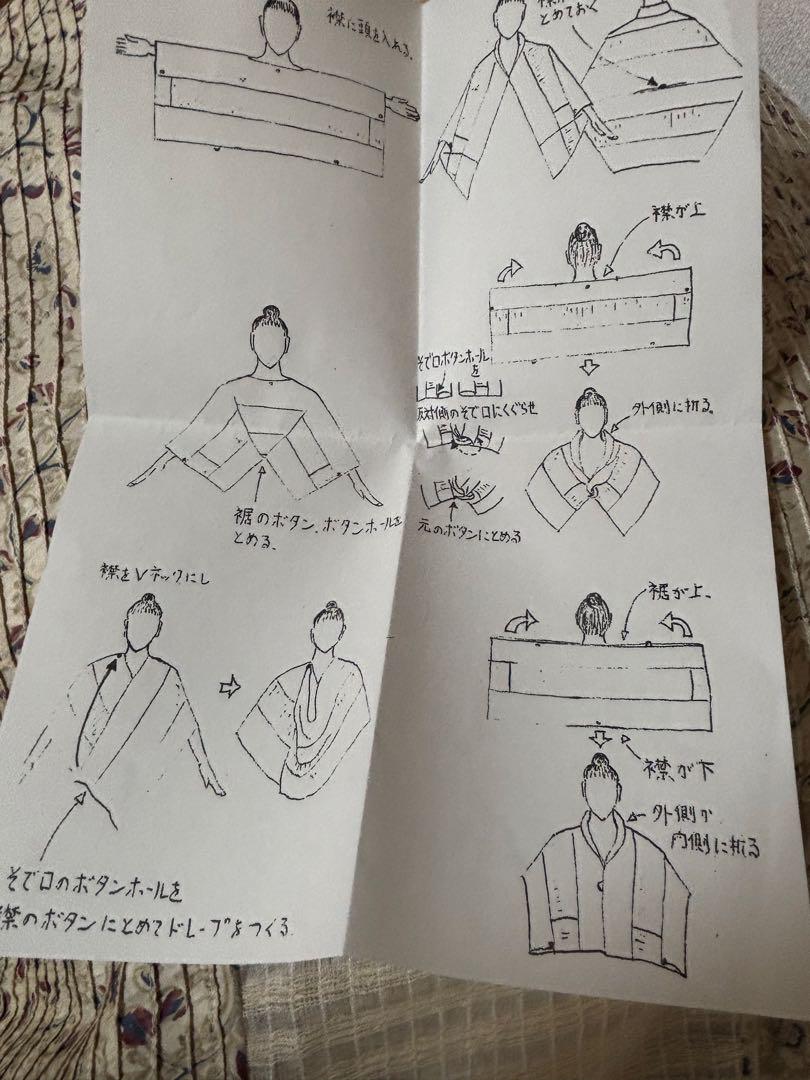 襟に頭を入れる。
とめておく
襟が上
そで口ボタンホール
を
反対側のそで口にくぐらせ
外側に折る。
元のボタンにとめる
裾のボタン、ボタンホールを
とめる。
襟をVネックにし
裾が上、
襟が下
外側か
内側に折る
そで口のボタンホールを
襟のボタンにとめてドレープをつくる.